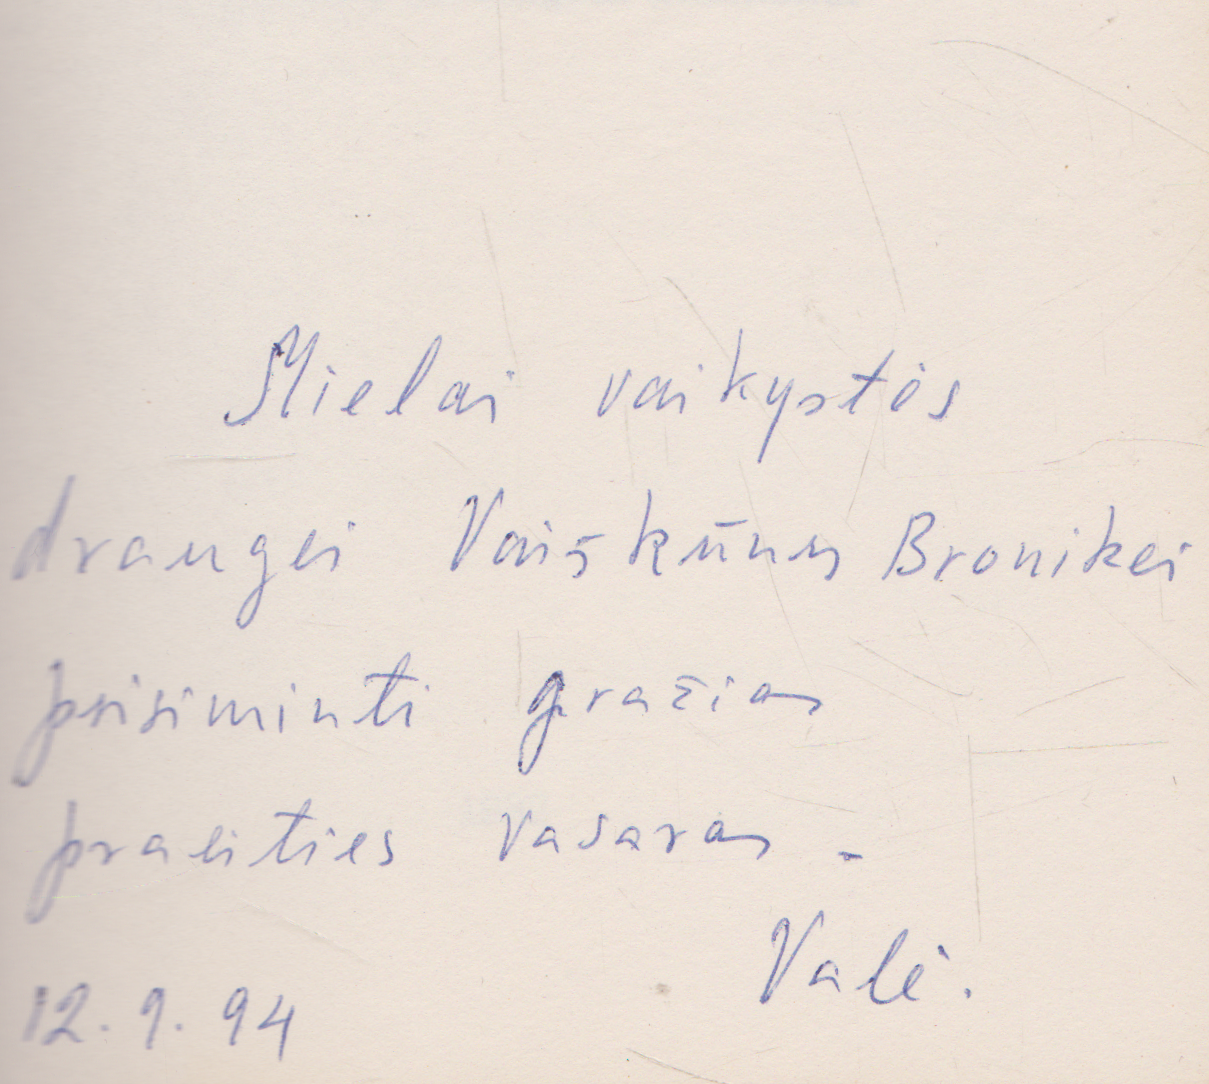 Mielai vaikystės
draugei Vaiškūnų Bronikei
prisiminti gražias
praeities vasaras -
Valė.
12. 9. 94